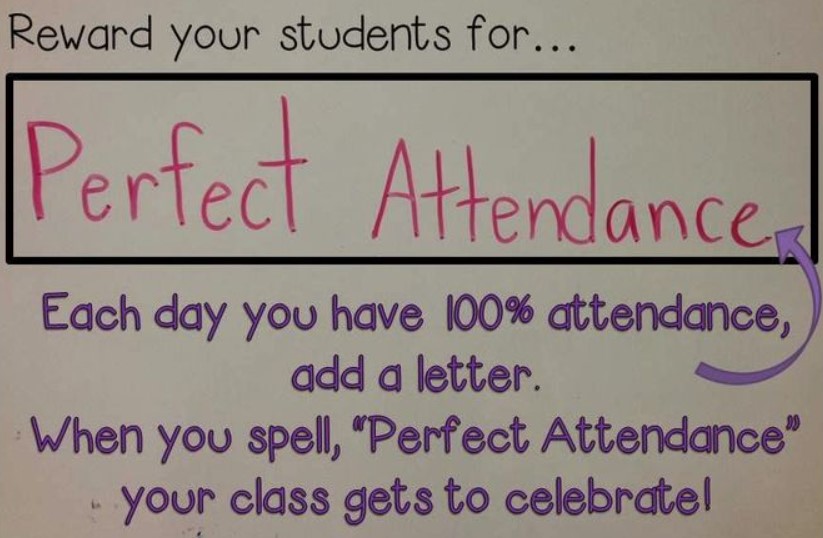 Reward your students for...
Perfect Attendance
Each day you have 100% attendance,
add a letter.
When you spell, "Perfect Attendance"
your class gets to celebrate!